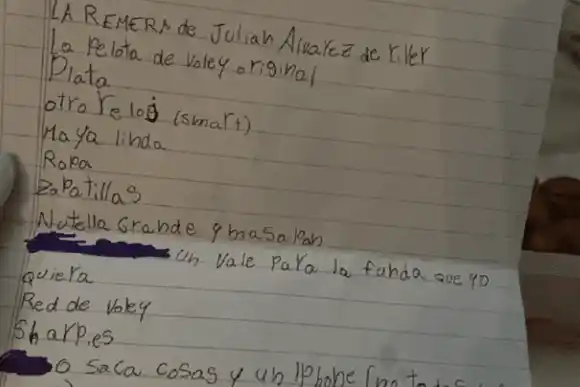 LA REMERA de Julian Alvarez de river
La Pelota de voley original
Plata
otro reloj (smart)
Maya linda
Ropa
Zapatillas
Nutella Grande y
un vale para la funda que yo
quiera
Red de voley
Sharpies
o saca cosas y un IPhone (no